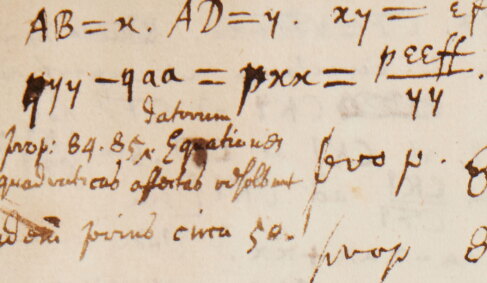 AB = x. AD = y. xy = ef
pyy − qaa = pxx = pεεff/yy.
datorum
prop: 84. 85, Equationes
quadraticas affectas
prop. 8
idem prius circa 50.
prop 8